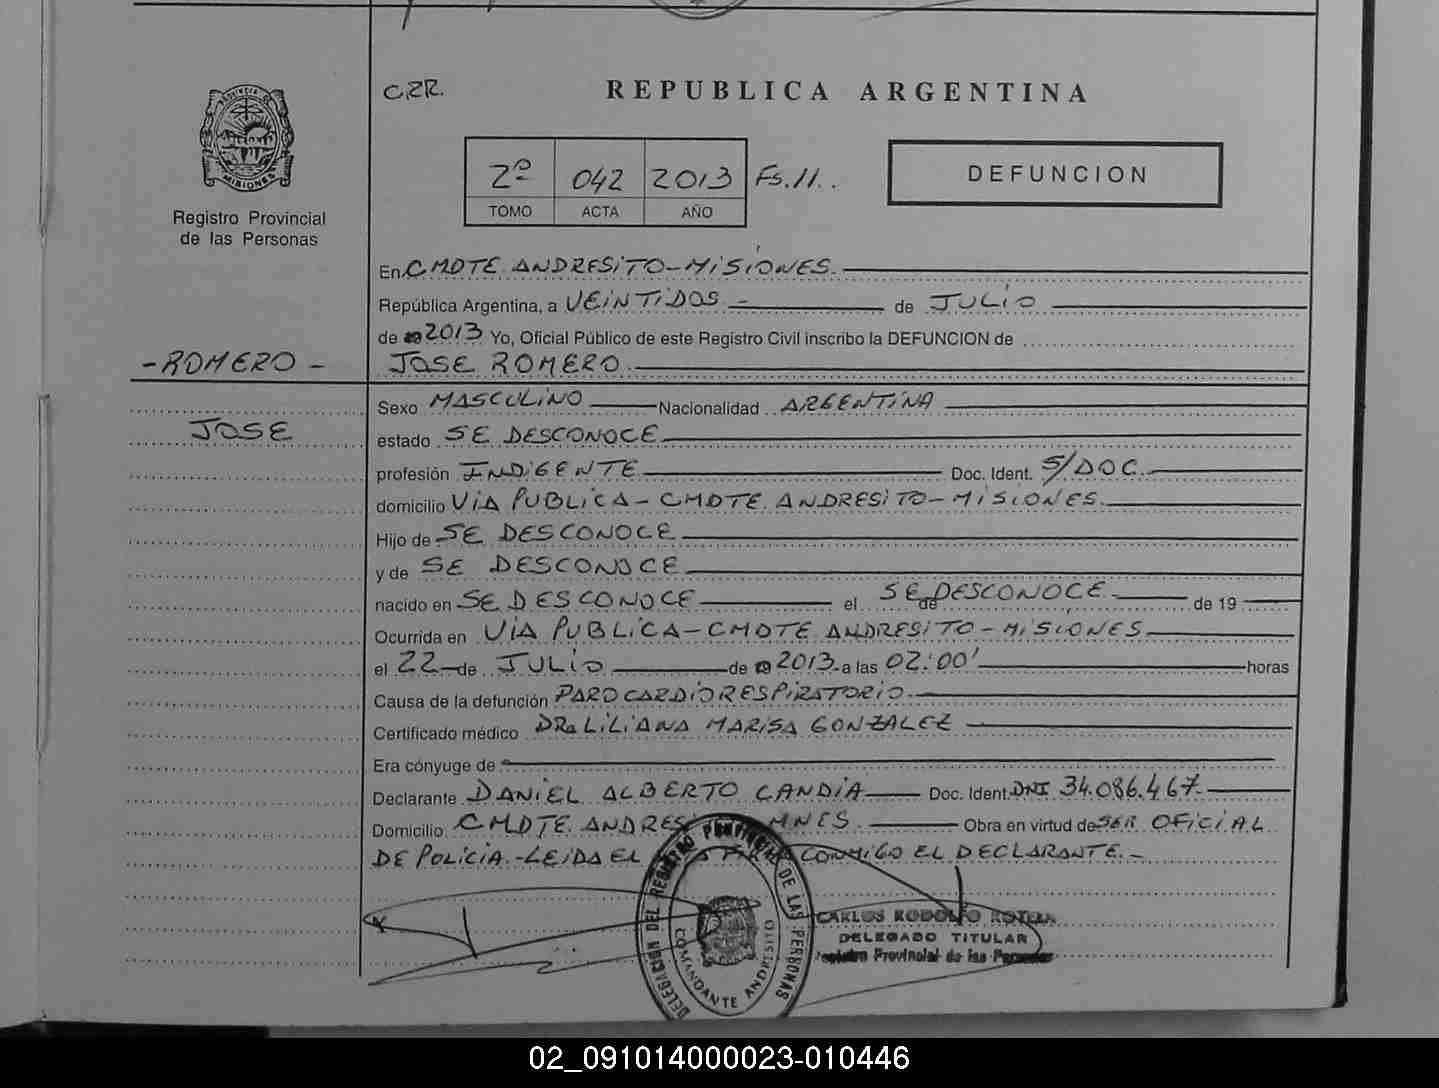 C.Z.R.
REPUBLICA ARGENTINA
PROVINCIA DE
MISIONES
Registro Provincial
de las Personas
2º 042 2013 Fs. 11.
TOMO ACTA AÑO
DEFUNCION
En CMDTE. ANDRESITO-MISIONES.
República Argentina, a VEINTIDOS - de JULIO
de 2013 Yo, Oficial Público de este Registro Civil inscribo la DEFUNCION de
-ROMERO-
JOSE ROMERO.
JOSE
Sexo MASCULINO Nacionalidad ARGENTINA
estado SE DESCONOCE
profesión INDIGENTE Doc. Ident. S/DOC.
domicilio VIA PUBLICA-CMDTE. ANDRESITO-MISIONES.
Hijo de SE DESCONOCE
y de SE DESCONOCE
nacido en SE DESCONOCE el SE DESCONOCE. de de 19
Ocurrida en VIA PUBLICA-CMDTE. ANDRESITO-MISIONES
el 22 de JULIO de 2013. a las 02:00' horas
Causa de la defunción PARO CARDIO RESPIRATORIO.
Certificado médico DRA LILIANA MARISA GONZALEZ
Era cónyuge de
Declarante DANIEL ALBERTO CANDIA Doc. Ident. DNI 34.086.467.
Domicilio CMDTE. ANDRES MNES. Obra en virtud de SER OFICIAL
DE POLICIA.-LEIDA EL CONMIGO EL DECLARANTE.-
DELEGACION DEL REGISTRO PROVINCIAL DE LAS PERSONAS
COMANDANTE ANDRESITO
CARLOS RODOLFO
DELEGADO TITULAR
Registro Provincial de las Personas
02_091014000023-010446